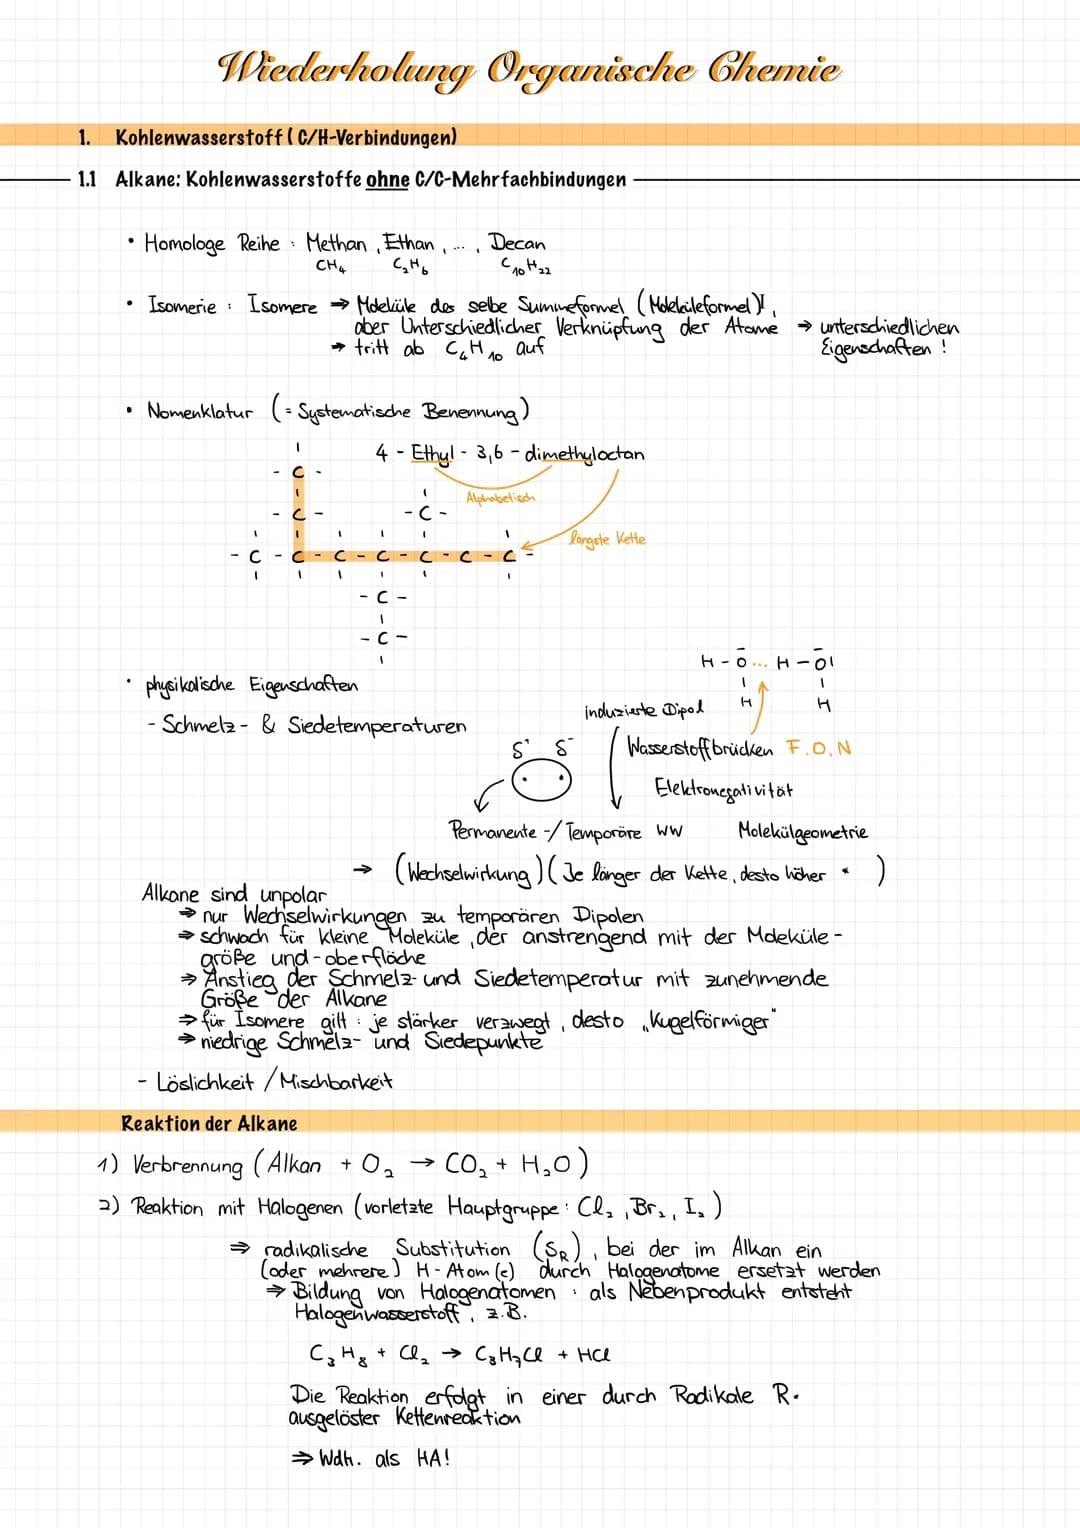 Wiederholung Organische Chemie
1. Kohlenwasserstoff (C/H-Verbindungen)
1.1 Alkane: Kohlenwasserstoffe ohne C/C-Mehrfachbindungen
• Homologe Reihe : Methan, Ethan, ..., Decan
CH₄ C₂H₆ C₁₀H₂₂
• Isomerie : Isomere → Moleküle des selbe Summeformel (Moleküleformel)!,
aber Unterschiedlicher Verknüpfung der Atome → unterschiedlichen
→ tritt ab C₄H₁₀ auf Eigenschaften !
• Nomenklatur (= Systematische Benennung)
4 - Ethyl - 3,6 - dimethyloctan
- C -
Alphabetisch
- C - - C -
längste Kette
- C - C - C - C - C - C - C -
- C -
- C -
H - O ... H - O
H H
• physikalische Eigenschaften
induzierte Dipol
- Schmelz - & Siedetemperaturen
δ⁺ δ⁻
Wasserstoffbrücken F, O, N
Elektronegativität
Permanente -/Temporäre WW Molekülgeometrie
→ (Wechselwirkung) (Je länger der Kette, desto höher * )
Alkane sind unpolar
→ nur Wechselwirkungen zu temporären Dipolen
→ schwach für kleine Moleküle, der anstrengend mit der Moleküle-
größe und -oberfläche
→ Anstieg der Schmelz- und Siedetemperatur mit zunehmende
Größe der Alkane
→ für Isomere gilt : je stärker verzwegt, desto „Kugelförmiger"
→ niedrige Schmelz- und Siedepunkte
- Löslichkeit / Mischbarkeit
Reaktion der Alkane
1) Verbrennung (Alkan + O₂ → CO₂ + H₂O)
2) Reaktion mit Halogenen (vorletzte Hauptgruppe : Cl₂, Br₂, I₂)
⇒ radikalische Substitution (S_R), bei der im Alkan ein
(oder mehrere) H - Atom (e) durch Halogenatome ersetzt werden
⇒ Bildung von Halogenatomen : als Nebenprodukt entsteht
Halogenwasserstoff, z.B.
C₃H₈ + Cl₂ → C₃H₇Cl + HCl
Die Reaktion erfolgt in einer durch Radikale R•
ausgelöster Kettenreaktion
⇒ Wdh. als HA!